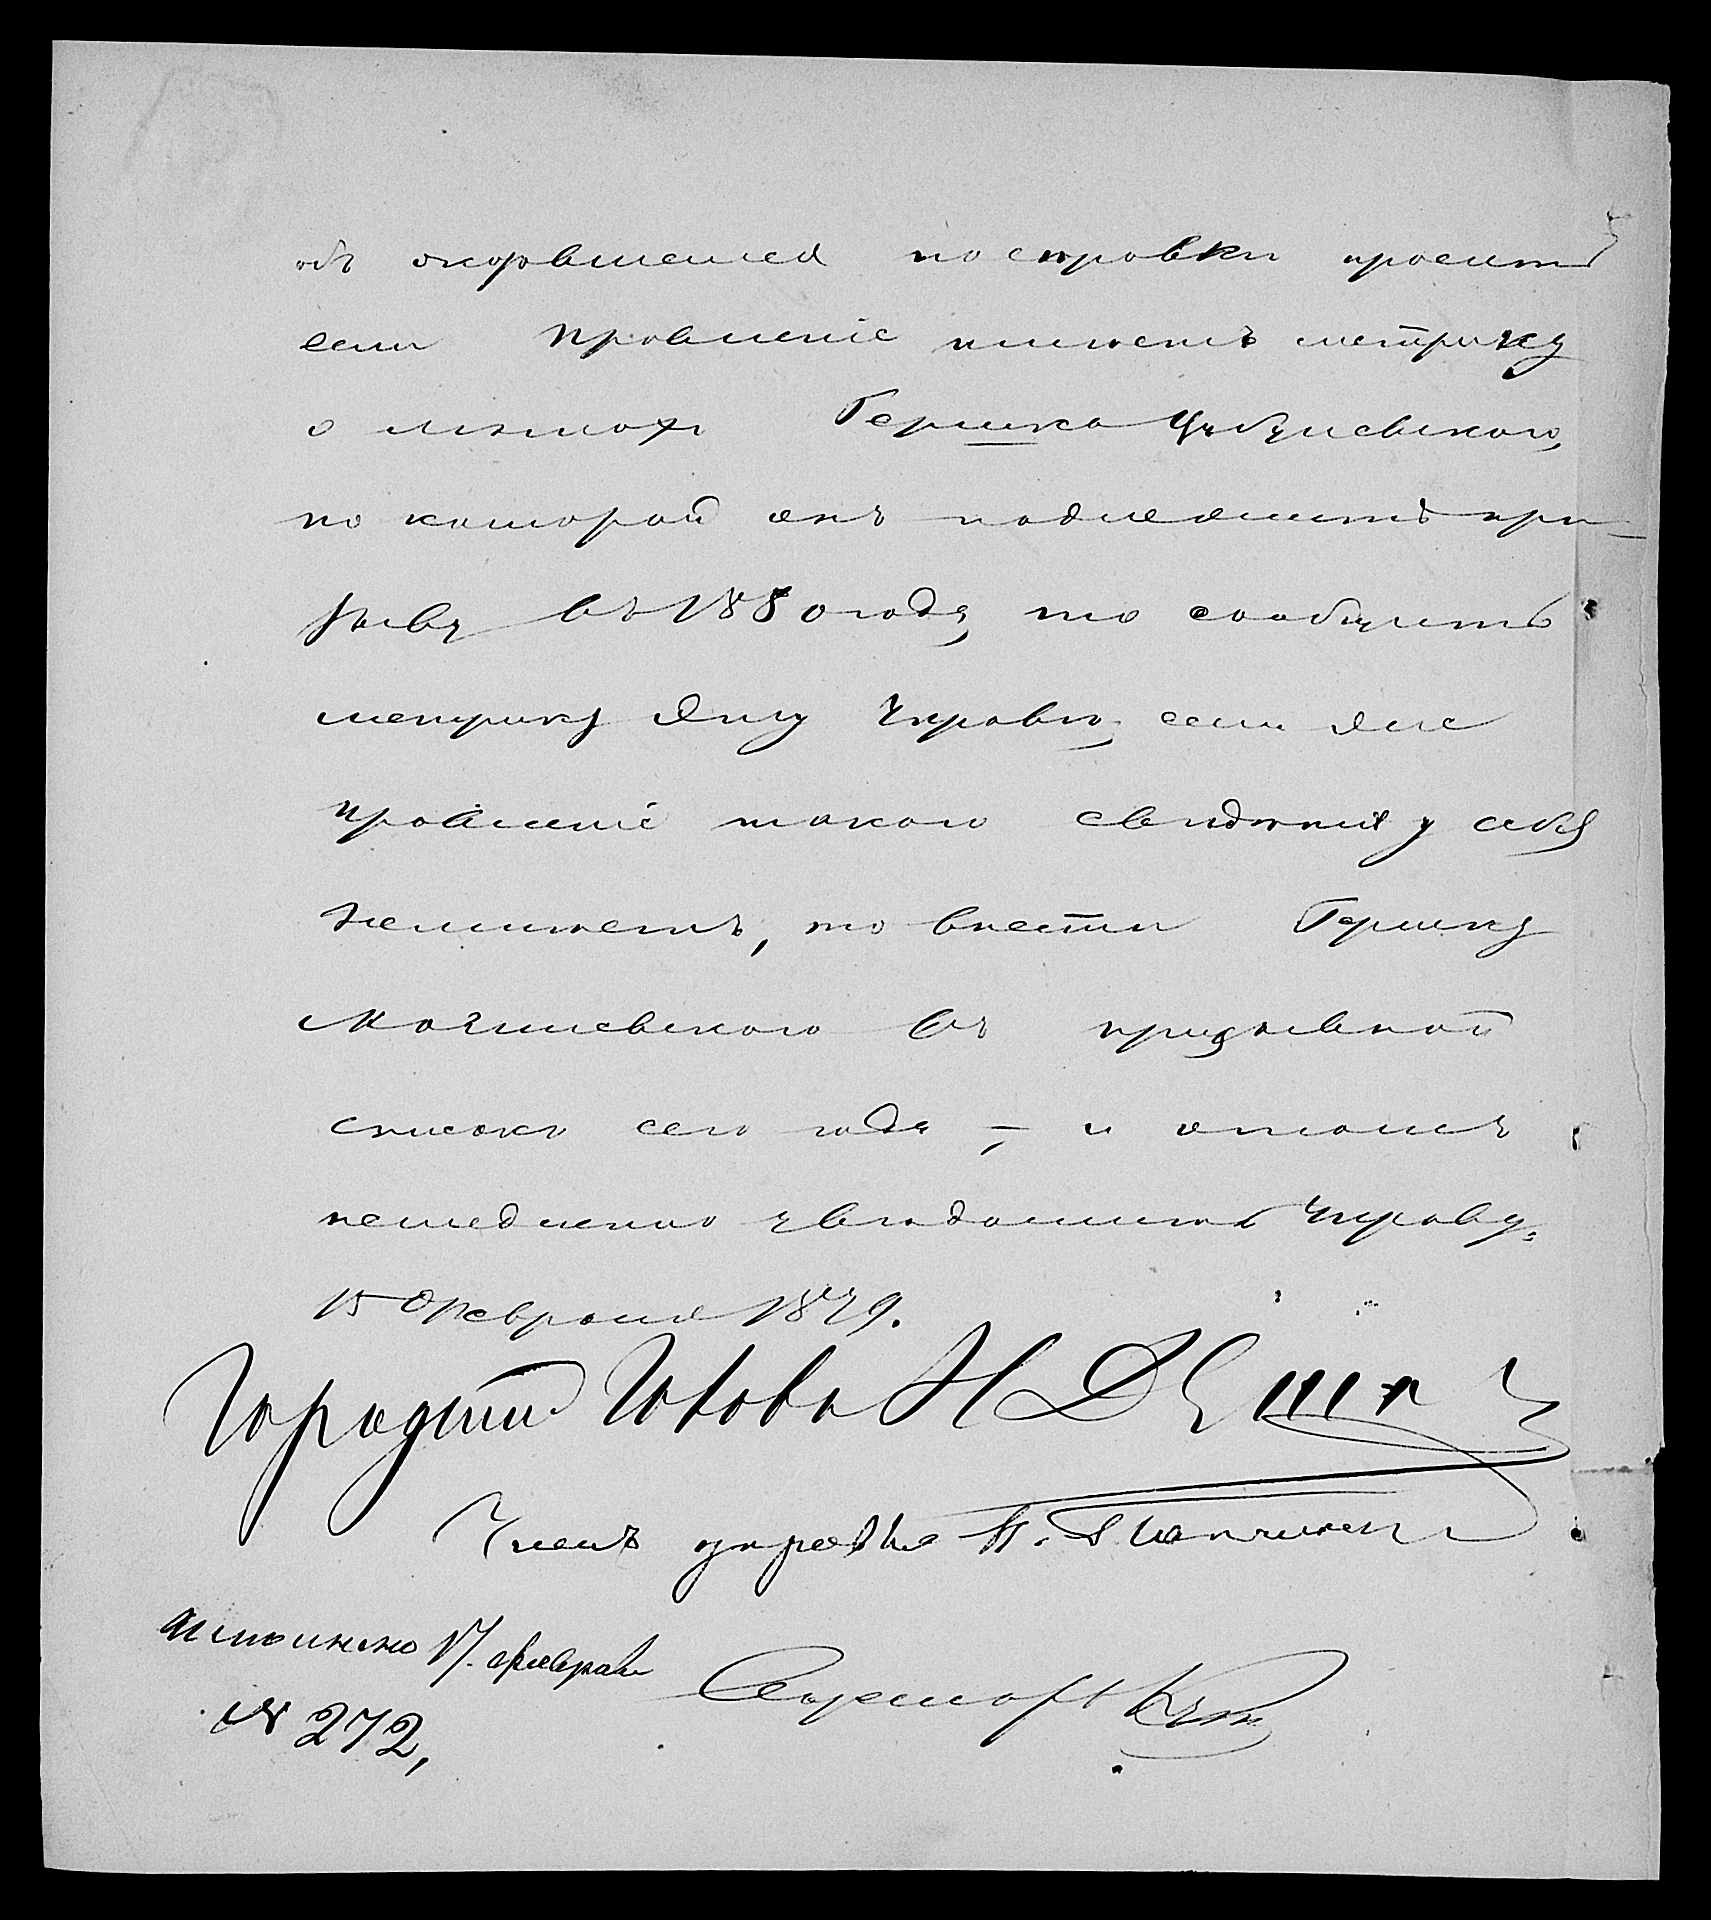 объ оказавшемся по справки проситъ
если Правленіе имѣетъ метрику
о лѣтахъ Гершка
по которой онъ подлежитъ при-
зыву въ 1880 году, то сообщить
метрику эту Управѣ, если же
правленіе такого свидѣнія у себя
неимѣетъ, то внести Гершку
Могилевского въ призывной
списокъ сего года, – и отомъ
немедленно увѣдомить Управу.
15 Февраля 1879.
Городской Голова Н
Членъ управы П.
Исполнено 17. февраля
Секретарь
№ 272,